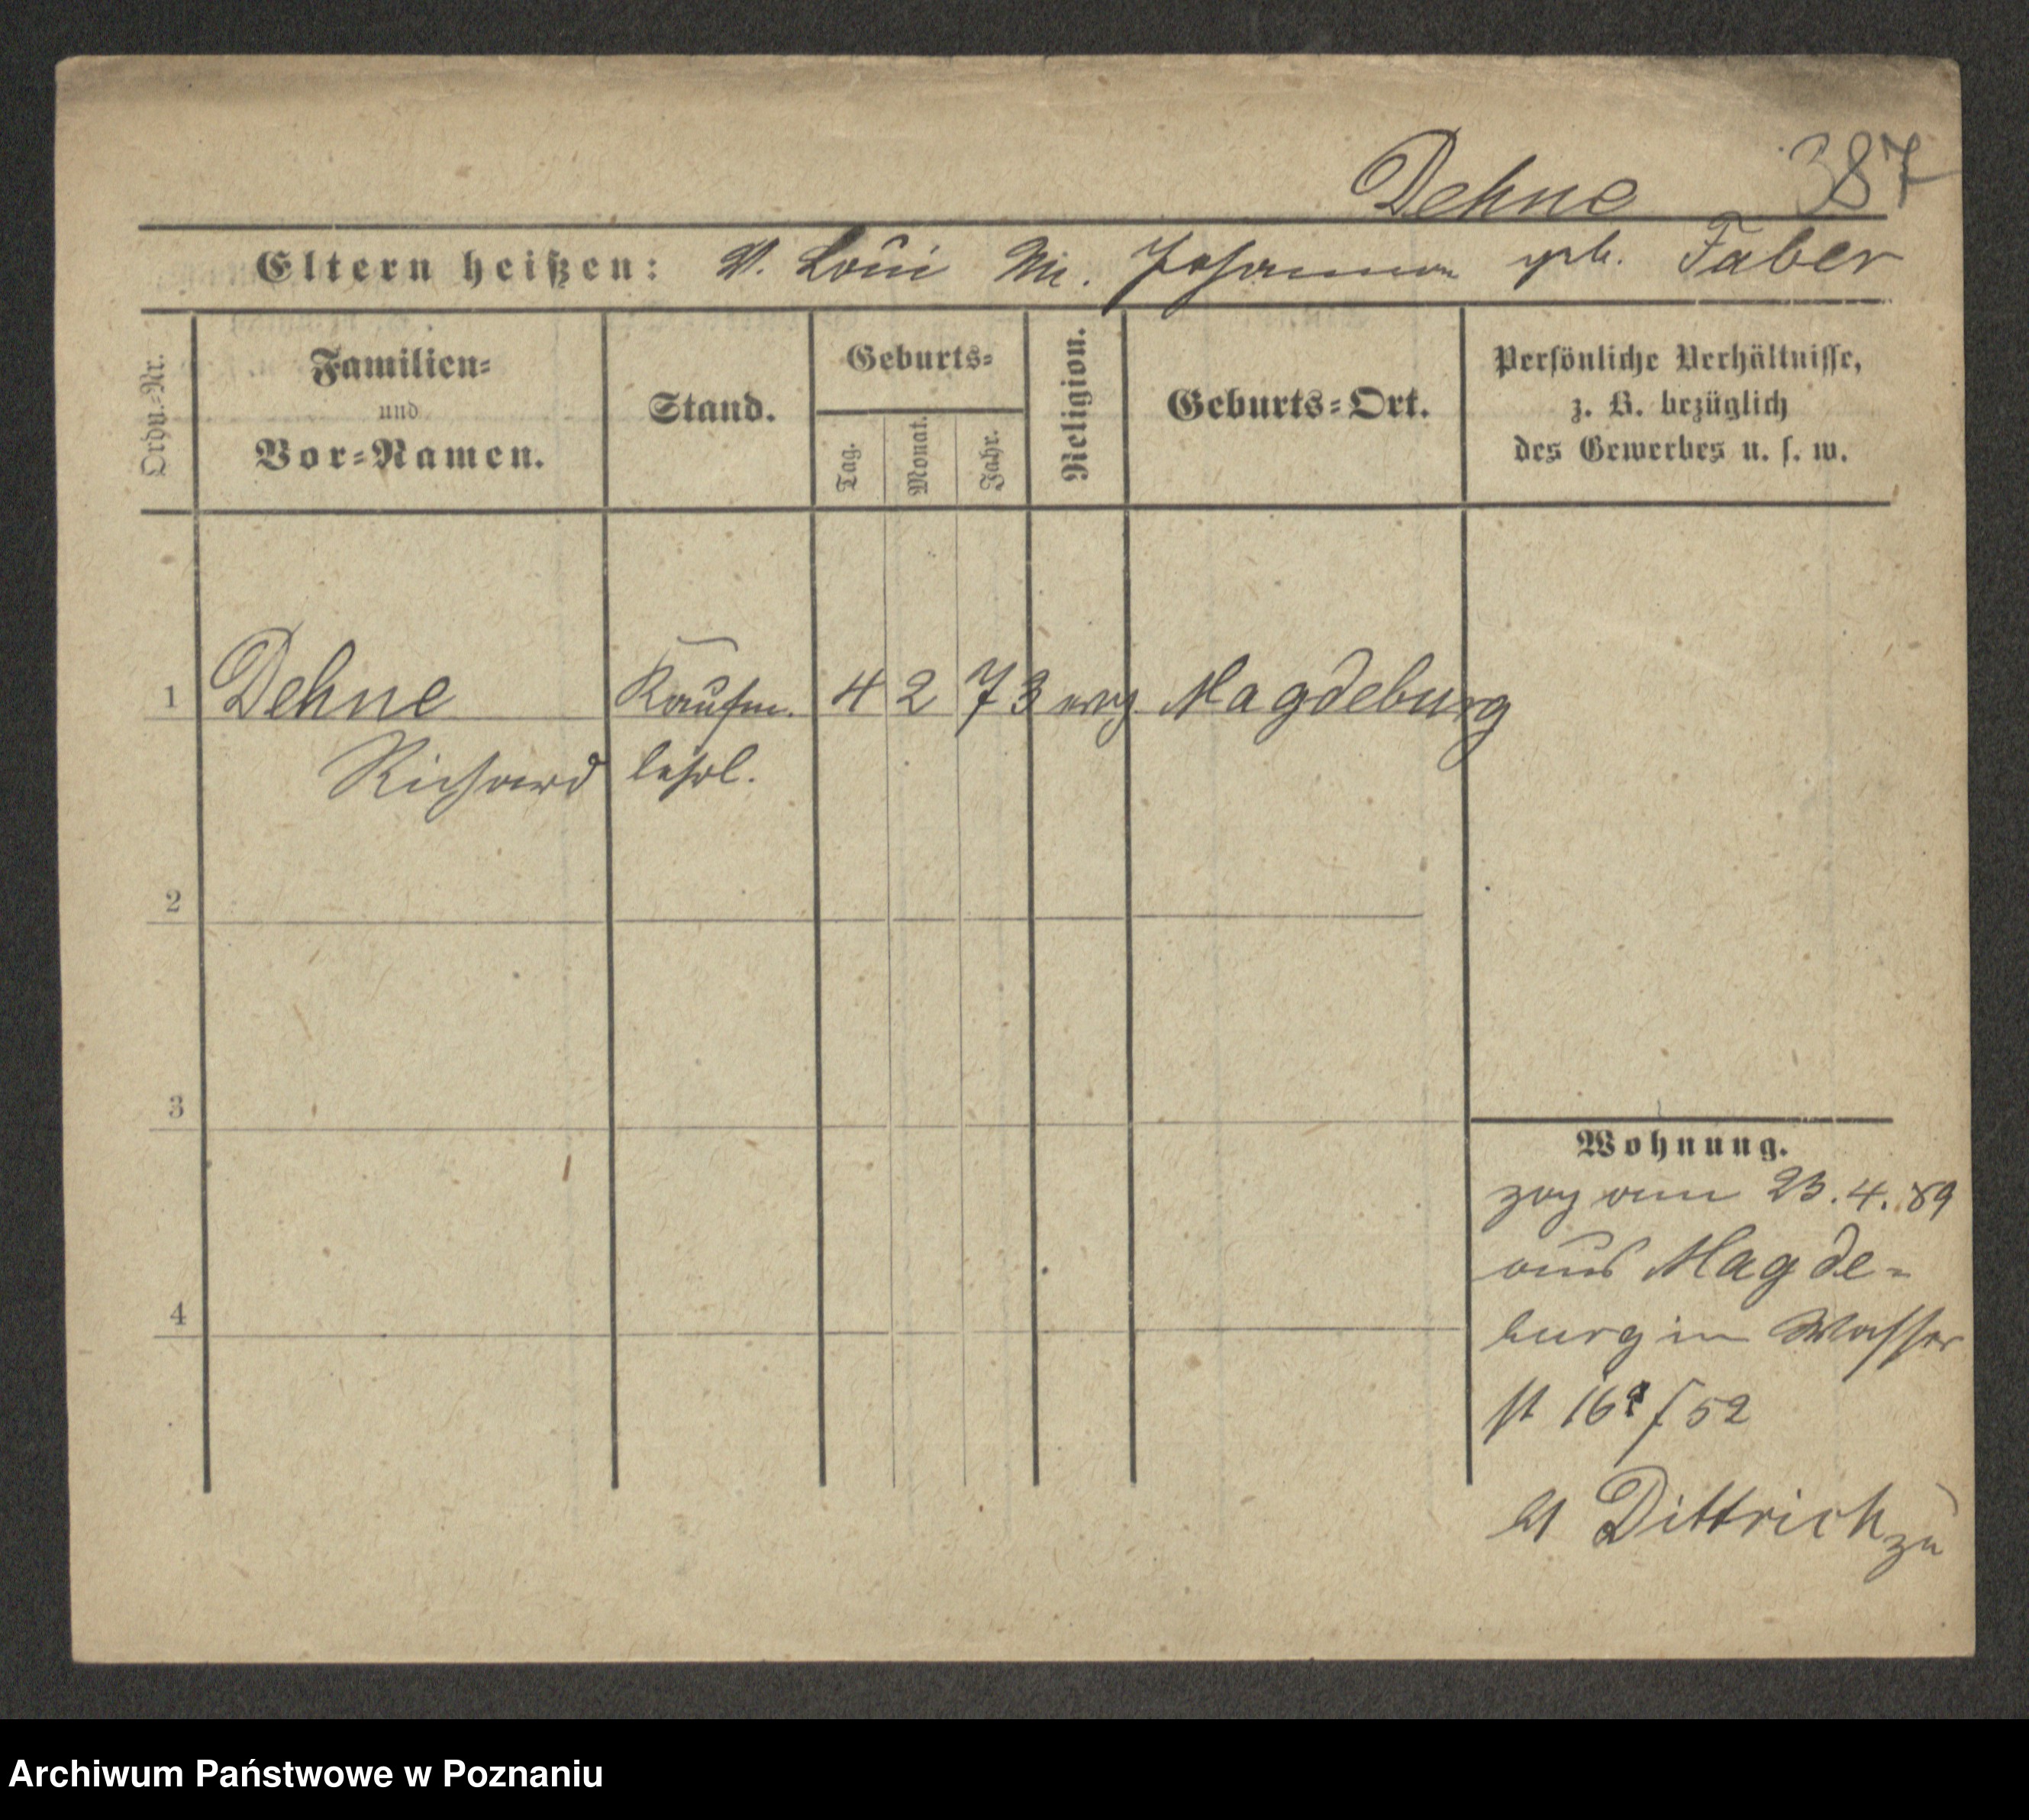 Dehne 387
Eltern heißen: V. Loui M. Johanna geb. Faber
Ordn.-Nr.
Familien-
und
Vor-Namen.
Stand.
Geburts-
Tag.
Monat.
Jahr.
Religion.
Geburts-Ort.
Persönliche Verhältnisse,
z. B. bezüglich
des Gewerbes u. s. w.
1 Dehne Kaufm. 4 2 73 evg Magdeburg
Richard lehrl.
2
3
4
Wohnung.
zog am 23.4.89
aus Magde-
burg in Wasser
st 16 / 52
Dittrich zu
Archiwum Państwowe w Poznaniu